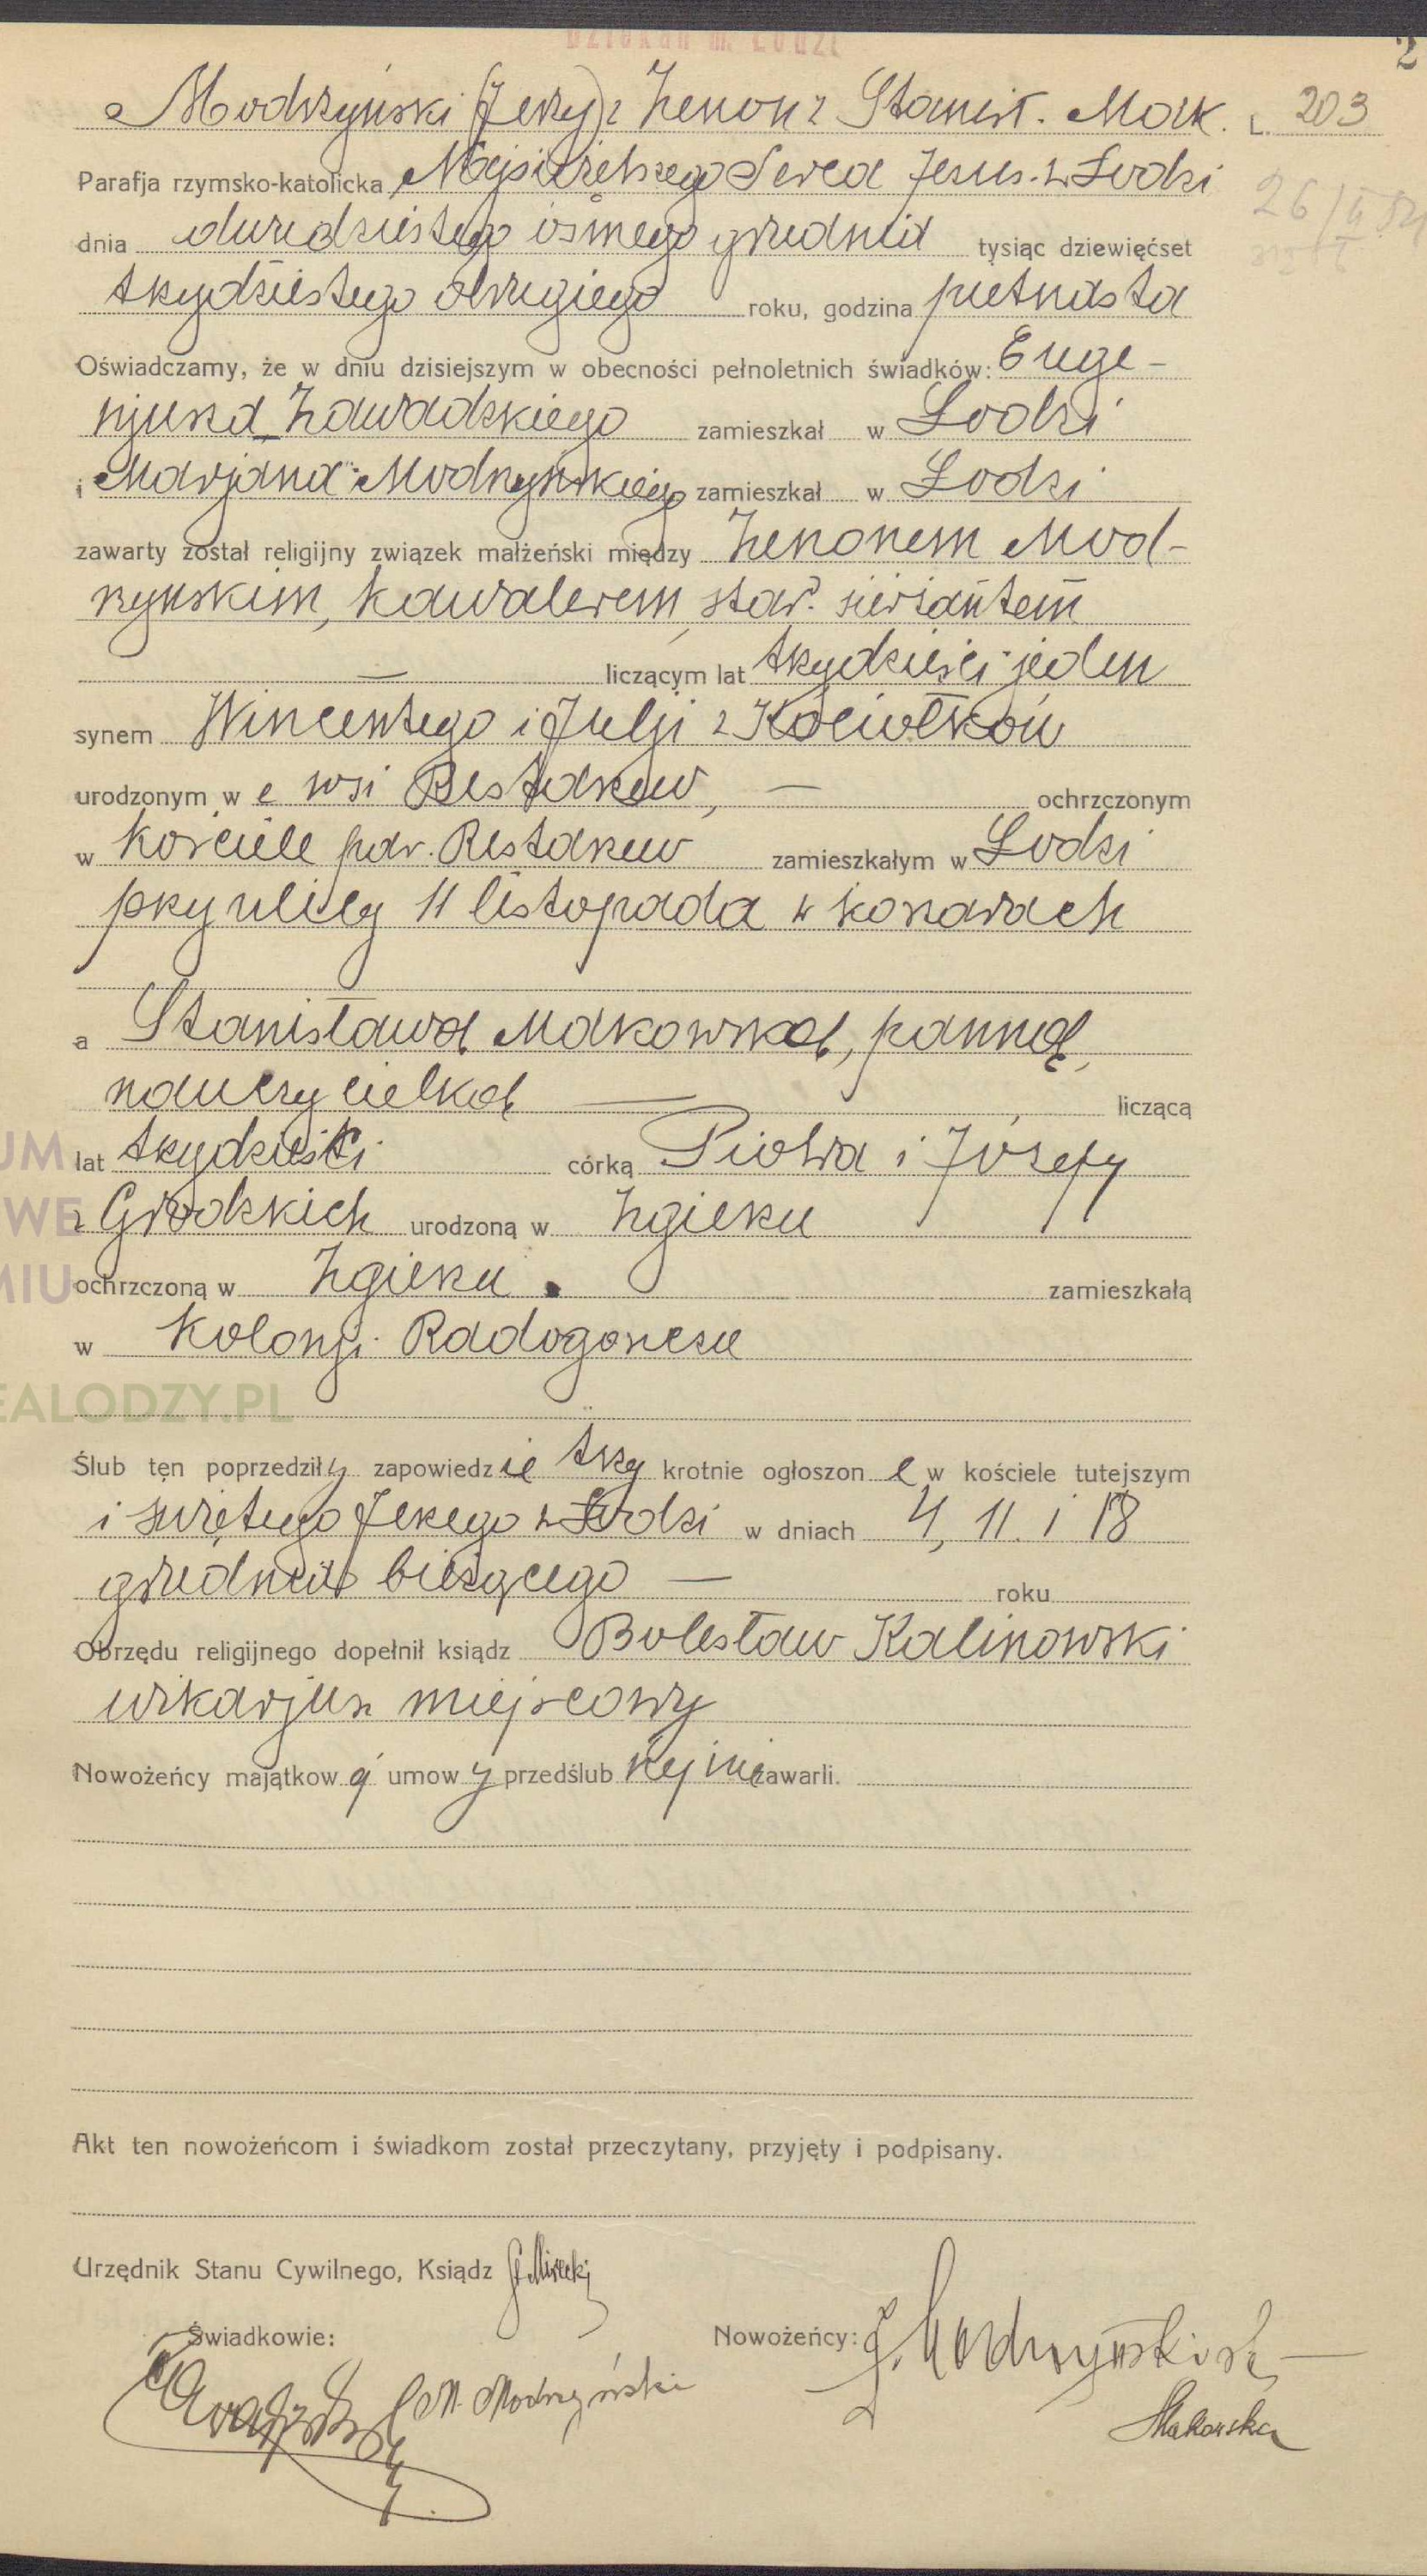 Dziekan m. Łodzi
2
Modrzyński (Jerzy) z Zenon z Stanisł. Mak. L. 203
Parafja rzymsko-katolicka Najśw. Serca Jezus. w Łodzi
26/
dnia dwudziestego ósmego grudnia tysiąc dziewięćset
trzydziestego drugiego roku, godzina piętnasta
Oświadczamy, że w dniu dzisiejszym w obecności pełnoletnich świadków: Euge-
njusza Zawadzkiego zamieszkał w Łodzi
i Marjana Modrzyńskiego zamieszkał w Łodzi
zawarty został religijny związek małżeński między Zenonem Mod-
rzyńskim, kawalerem, star. sierżantem
— liczącym lat trzydzieści jeden
synem Wincentego i Julji z Kociołków
urodzonym w e wsi Restarzew, — ochrzczonym
w kościele par. Restarzew zamieszkałym w Łodzi
przy ulicy 11 listopada w koszarach
a Stanisławą Makowską, panną,
nauczycielką — liczącą
lat trzydzieści córką Piotra i Józefy
z Grodzkich urodzoną w Zgierzu
ochrzczoną w Zgierzu. zamieszkałą
w Kolonji Radogoszcz
EALODZY.PL
Ślub ten poprzedziły zapowiedzie trzy krotnie ogłoszone w kościele tutejszym
i świętego Jerzego w Łodzi w dniach 4, 11 i 18
grudnia bieżącego — roku
Obrzędu religijnego dopełnił ksiądz Bolesław Kalinowski
wikarjusz miejscowy
Nowożeńcy majątkowej umowy przedślubnej nie zawarli.
Akt ten nowożeńcom i świadkom został przeczytany, przyjęty i podpisany.
Urzędnik Stanu Cywilnego, Ksiądz
Świadkowie: Nowożeńcy: Modrzyński
M. Modrzyński
SMakowska